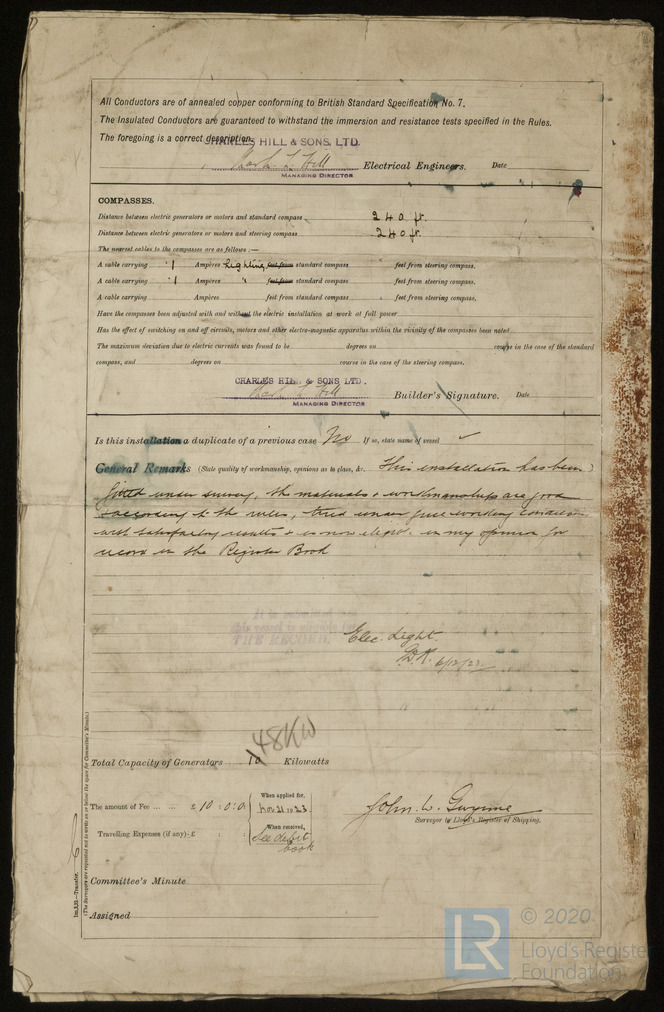 All Conductors are of annealed copper conforming to British Standard Specification No. 7.
The Insulated Conductors are guaranteed to withstand the immersion and resistance tests specified in the Rules.
The foregoing is a correct description.
CHARLES HILL & SONS, LTD.
Hill Electrical Engineers. Date
MANAGING DIRECTOR
COMPASSES.
Distance between electric generators or motors and standard compass 240 ft.
Distance between electric generators or motors and steering compass 240 ft.
The nearest cables to the compasses are as follows :—
A cable carrying ·1 Ampères Lighting feet from standard compass feet from steering compass.
A cable carrying ·1 Ampères " feet from standard compass feet from steering compass.
A cable carrying Ampères feet from standard compass feet from steering compass.
Have the compasses been adjusted with and without the electric installation at work at full power
Has the effect of switching on and off circuits, motors and other electro-magnetic apparatus within the vicinity of the compasses been noted
The maximum deviation due to electric currents was found to be degrees on course in the case of the standard
compass, and degrees on course in the case of the steering compass.
CHARLES HILL & SONS LTD.
Hill Builder's Signature. Date
MANAGING DIRECTOR
Is this installation a duplicate of a previous case No If so, state name of vessel ✓
General Remarks (State quality of workmanship, opinions as to class, &c. This installation has been)
fitted under survey, the materials & workmanship are good
& according to the rules, tried under full working conditions
with satisfactory results & is now eligible in my opinion for
record in the Register Book
It is submitted that
this vessel is eligible for
THE RECORD.
Elec. Light.
6/12/23
48KW
Total Capacity of Generators 10 Kilowatts
The amount of Fee ... ... £ 10 : 0 : 0
When applied for,
Nov. 21 1923
When received,
See debit
book
Travelling Expenses (if any) £ : :
John W. Gwynne
Surveyor to Lloyd's Register of Shipping.
Committee's Minute
Assigned
1m.8.22.—Transfer.
(The Surveyors are requested not to write on or below the space for Committee's Minute.)
LR © 2020
Lloyd's Register
Foundation